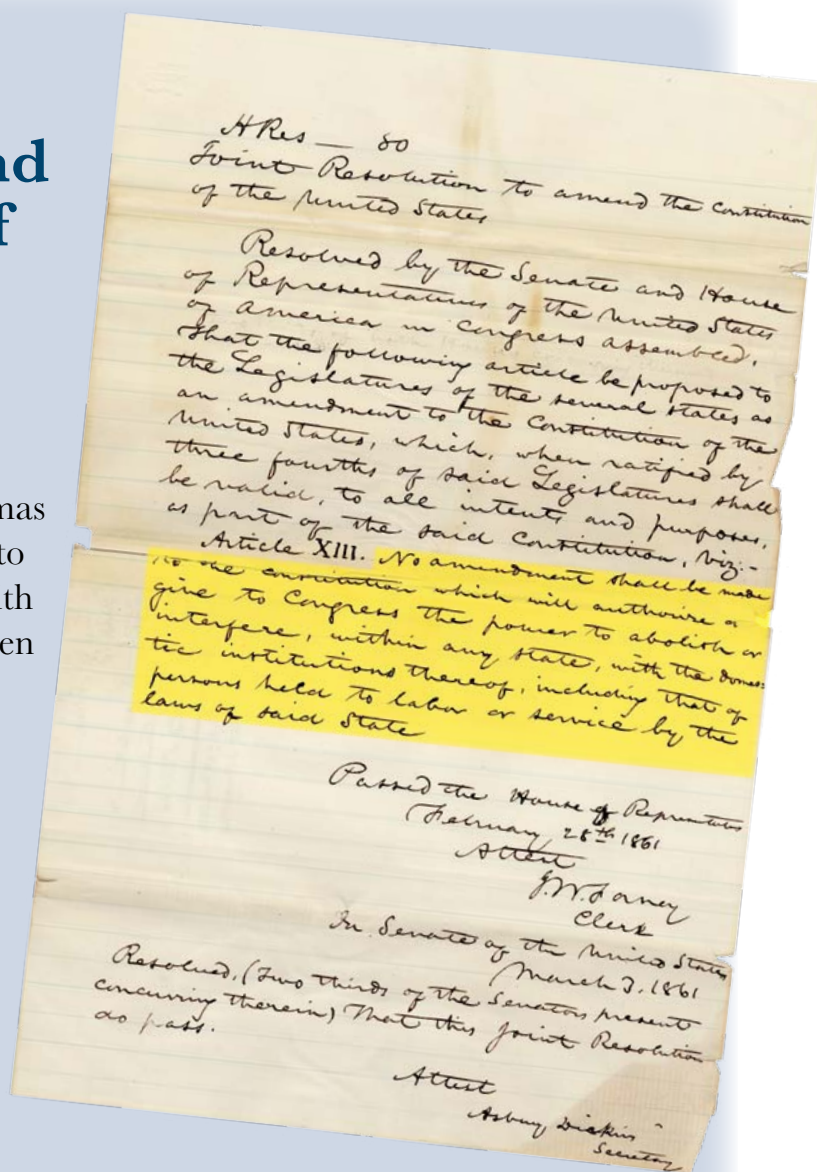 nd
f
mas
to
ith
en
H Res — 80
Joint Resolution to amend the Constitution
of the United States
Resolved by the Senate and House
of Representatives of the United States
of America in Congress assembled,
That the following article be proposed to
the Legislatures of the several States as
an amendment to the Constitution of the
United States, which, when ratified by
three fourths of said Legislatures shall
be valid, to all intents and purposes,
as part of the said Constitution, viz:-
Article XIII. No amendment shall be made
to the constitution which will authorize or
give to Congress the power to abolish or
interfere, within any state, with the domes=
tic institutions thereof, including that of
persons held to labor or service by the
laws of said State
Passed the House of Representatives
February 28th 1861
Attest
J.W. Forney
Clerk
In Senate of the United States
March 3, 1861
Resolved, (two thirds of the Senators present
concurring therein) That this Joint Resolution
do pass.
Attest
Asbury Dickins
Secretary